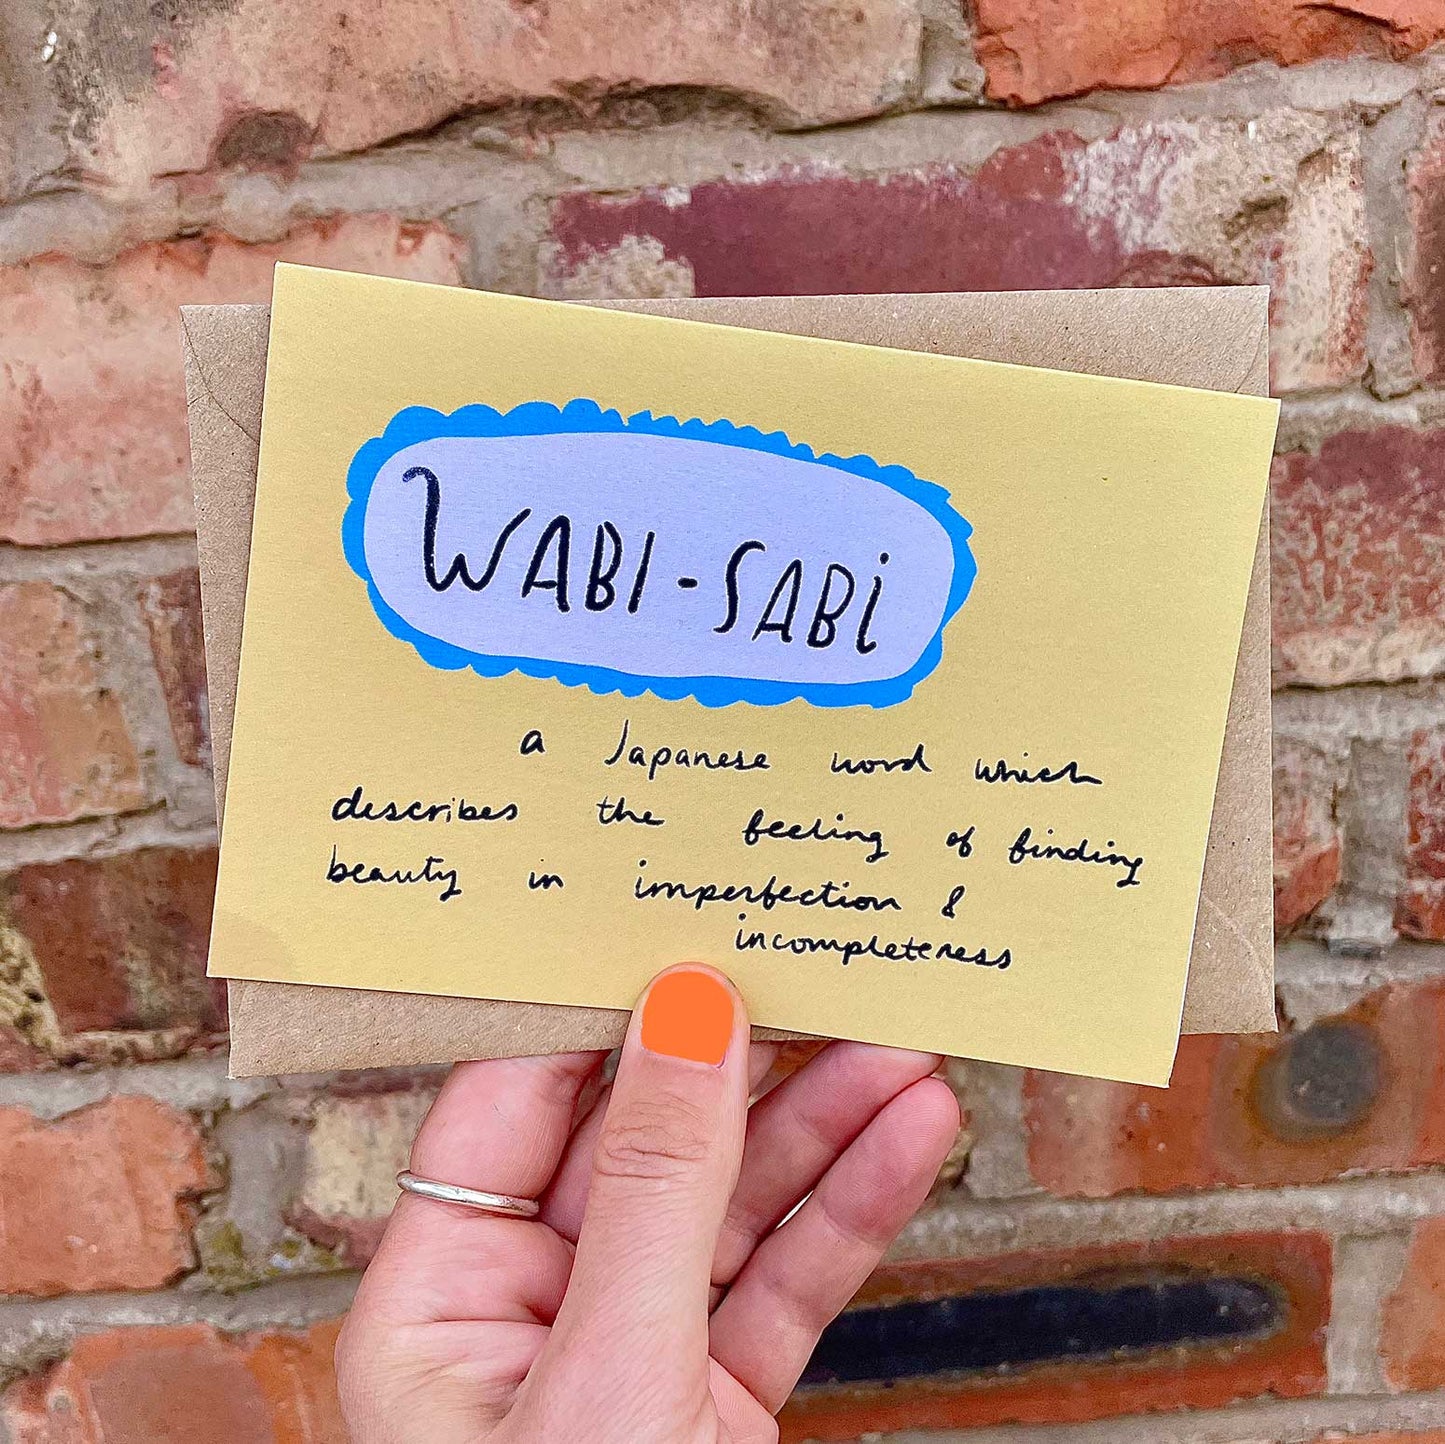 WABI-SABi
a Japanese word which
describes the feeling of finding
beauty in imperfection &
incompleteness